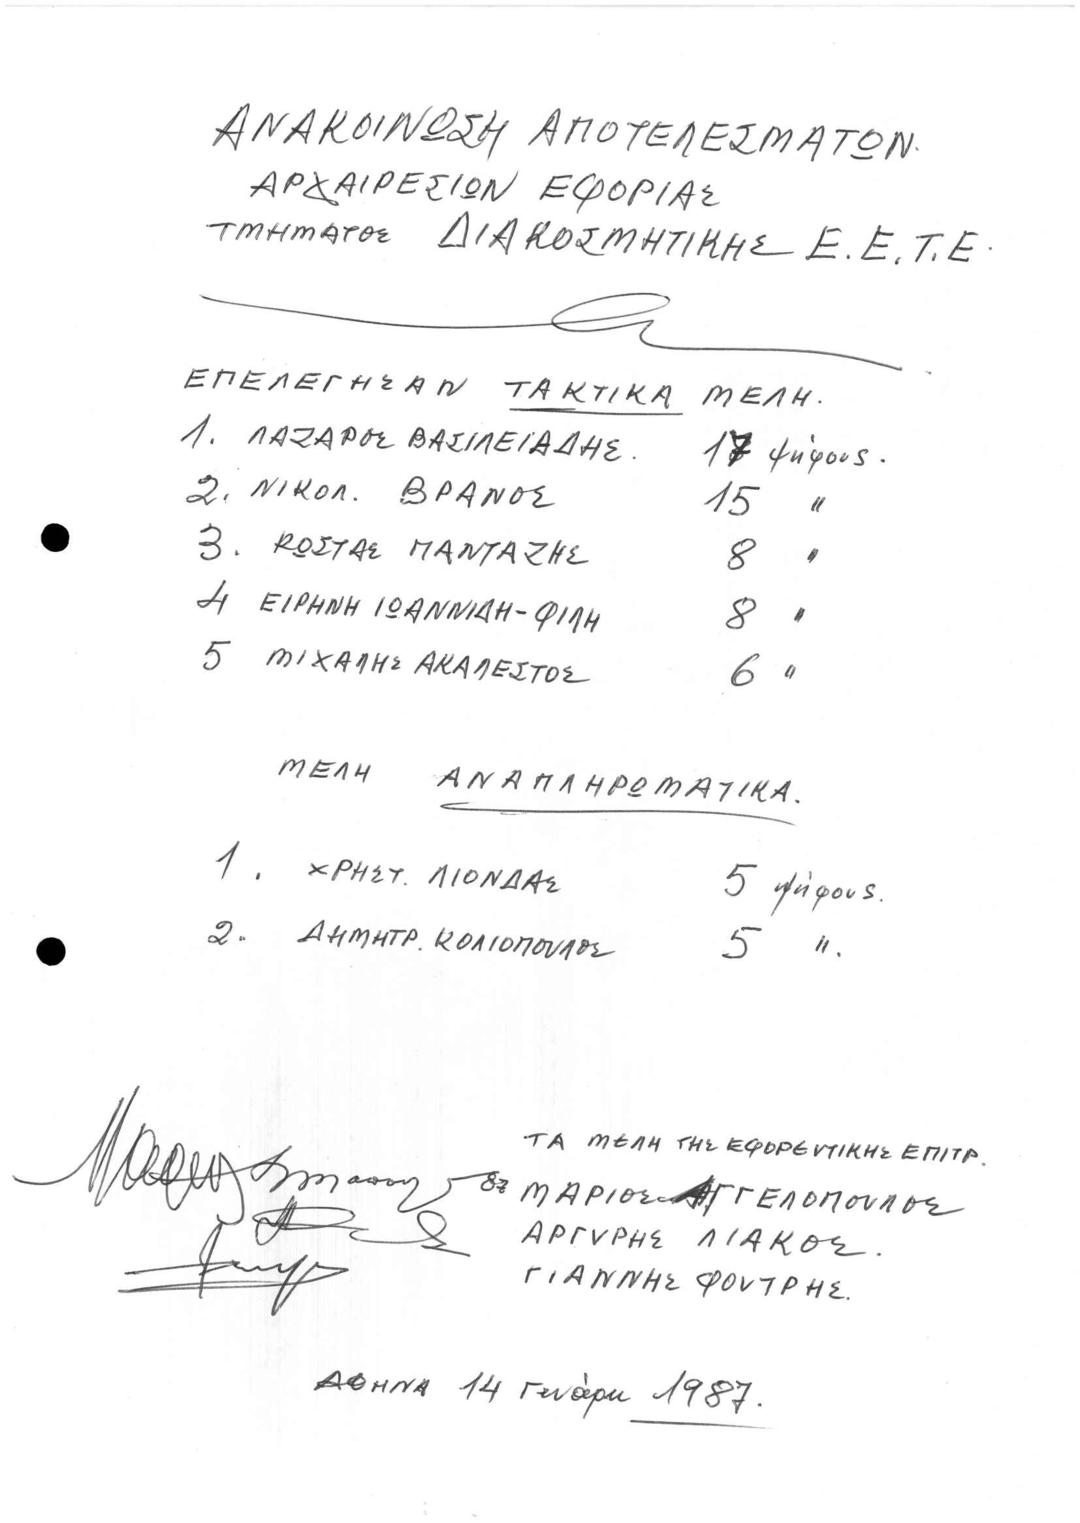 ΑΝΑΚΟΙΝΩΣΗ ΑΠΟΤΕΛΕΣΜΑΤΩΝ.
ΑΡΧΑΙΡΕΣΙΩΝ ΕΦΟΡΙΑΣ
ΤΜΗΜΑΤΟΣ ΔΙΑΚΟΣΜΗΤΙΚΗΣ Ε.Ε.Τ.Ε.
ΕΠΕΛΕΓΗΣΑΝ ΤΑΚΤΙΚΑ ΜΕΛΗ.
1. ΛΑΖΑΡΟΣ ΒΑΣΙΛΕΙΑΔΗΣ. 17 ψήφους.
2. ΝΙΚΟΛ. ΒΡΑΝΟΣ 15 "
3. ΚΩΣΤΑΣ ΠΑΝΤΑΖΗΣ 8 "
4 ΕΙΡΗΝΗ ΙΩΑΝΝΙΔΗ-ΦΙΛΗ 8 "
5 ΜΙΧΑΛΗΣ ΑΚΑΛΕΣΤΟΣ 6 "
ΜΕΛΗ ΑΝΑΠΛΗΡΩΜΑΤΙΚΑ.
1. ΧΡΗΣΤ. ΛΙΟΝΔΑΣ 5 ψήφους.
2. ΔΗΜΗΤΡ. ΚΟΛΙΟΠΟΥΛΟΣ 5 ".
ΤΑ ΜΕΛΗ ΤΗΣ ΕΦΟΡΕΥΤΙΚΗΣ ΕΠΙΤΡ.
87 ΜΑΡΙΟΣ ΑΓΓΕΛΟΠΟΥΛΟΣ
ΑΡΓΥΡΗΣ ΛΙΑΚΟΣ.
ΓΙΑΝΝΗΣ ΦΟΥΤΡΗΣ.
ΑΘΗΝΑ 14 Γενάρη 1987.